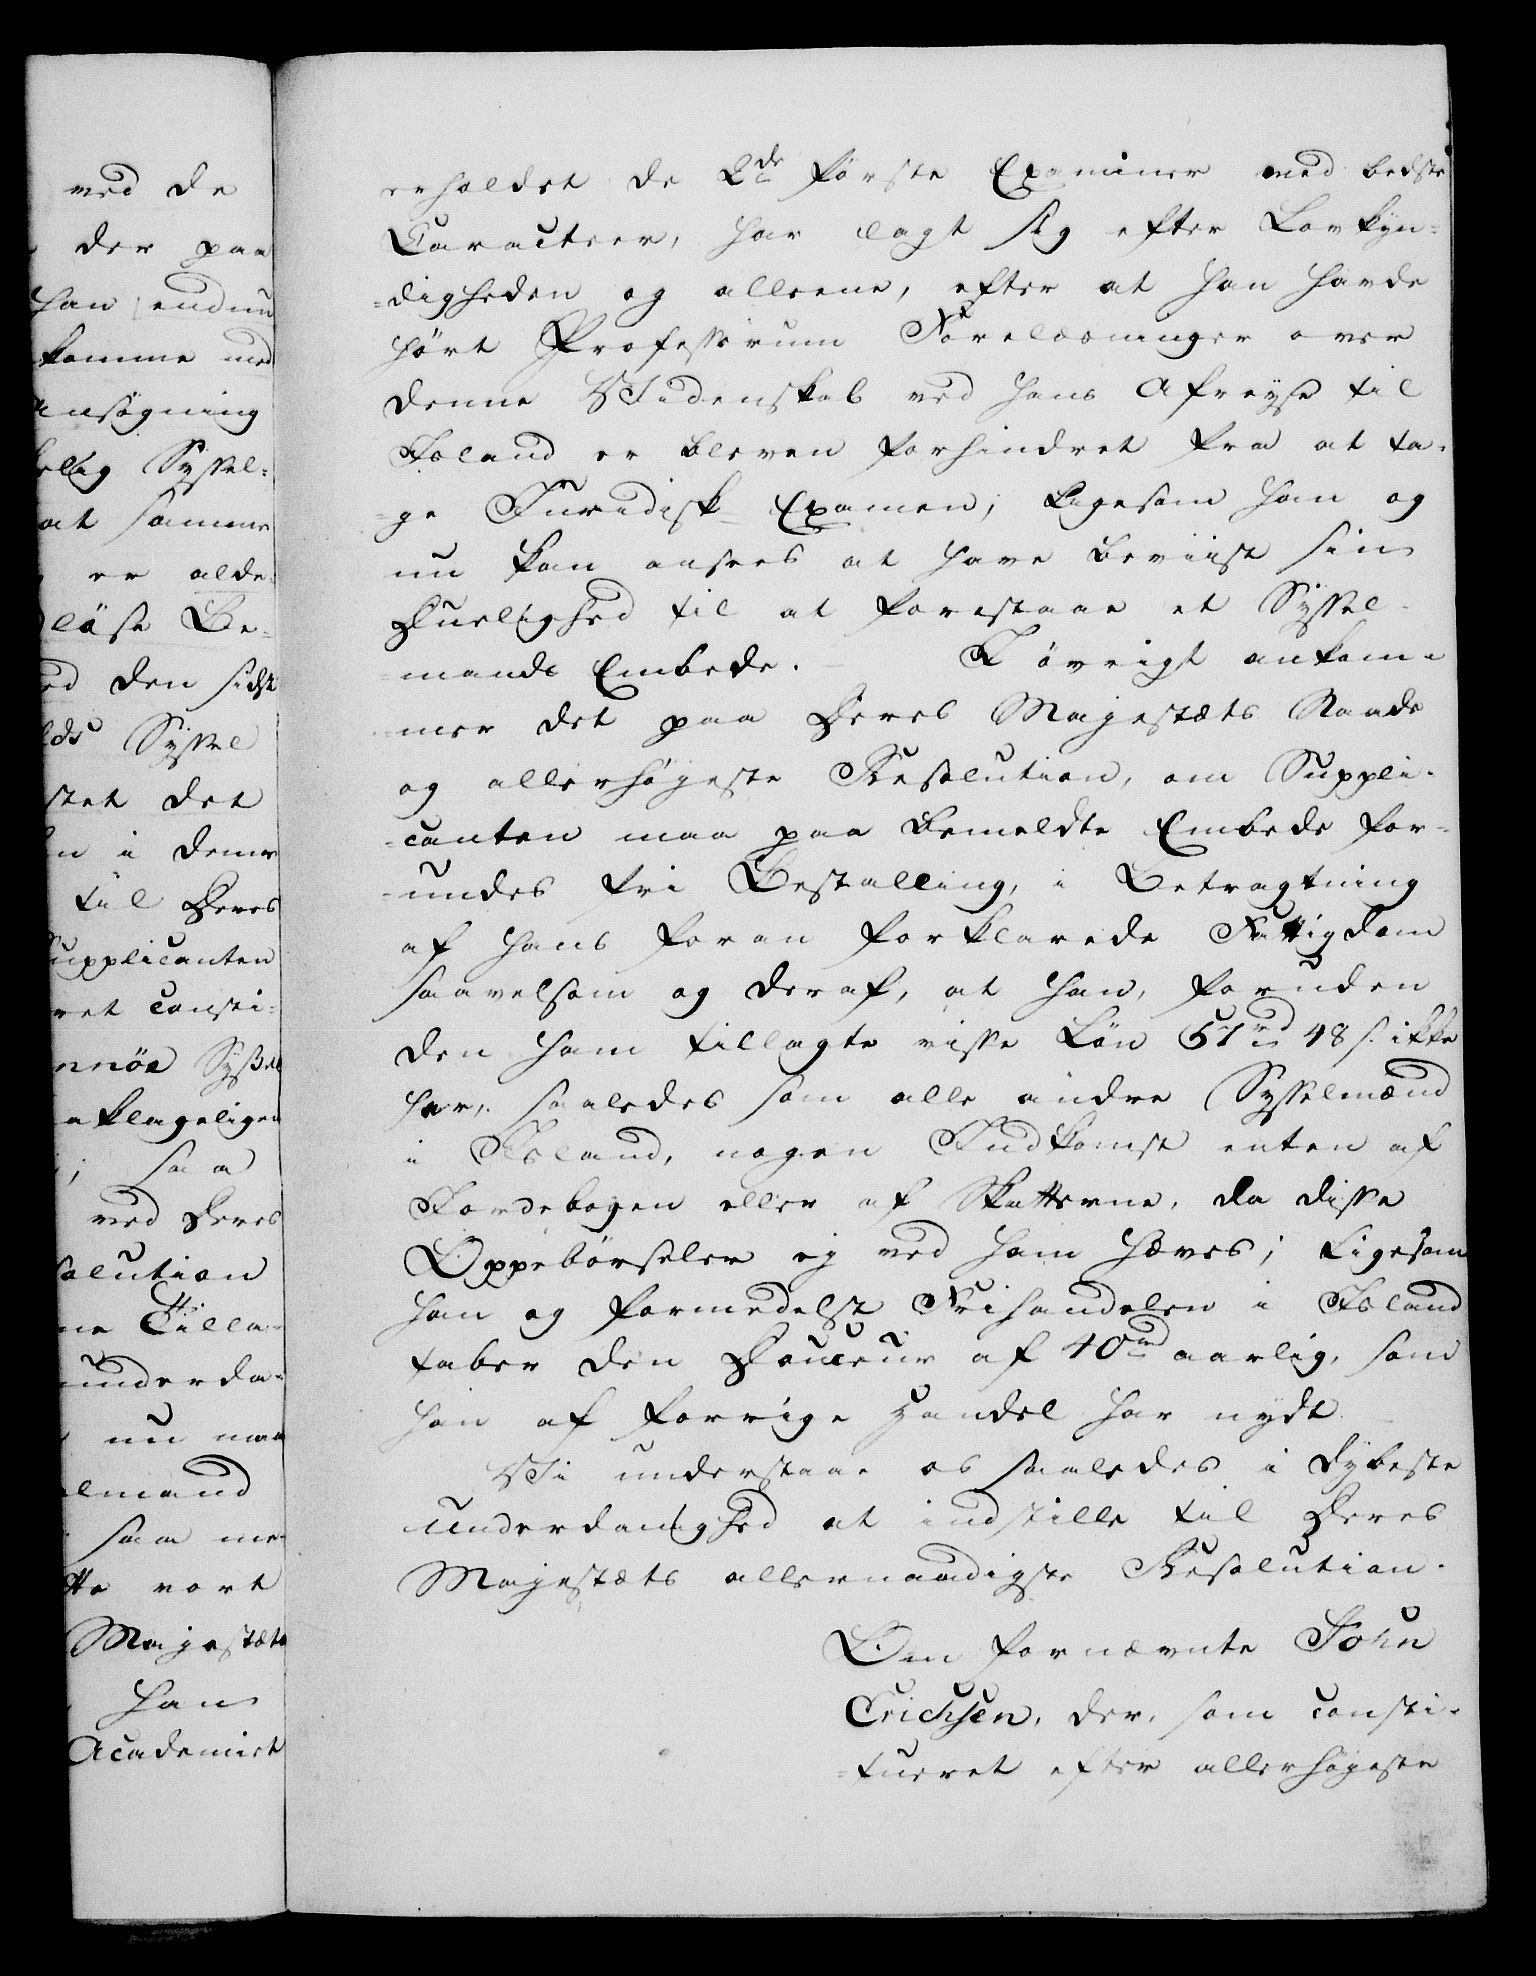 ved de
der paa
han endnu
komme med
Ansøgning
Syssel-
at samme
er alde-
løse Be-
den sidst
Syssel
det
i denne
til Deres
Supplicanten
consti-
nnöe Syssel
klageligen
saa
ved Deres
solution
Tilla-
underda-
nu maa
elmand
saa me-
vort
Majestæts
han
Academiet
erholdet de 2de første Examiner med bedste
Caracteer, har lagt sig efter Lovkyn-
-digheden og alleene, efter at han havde
hört Professorum Forelæsninger over
denne Videnskab ved hans Afreyse til
Island er bleven forhindret fra at ta-
-ge Juridisk Examen; ligesom han og
nu kan ansees at have beviist sin
Duelighed til at forestaae et Syssel-
-mands Embede. I övrigt ankom-
-mer det paa Deres Majestæts Naade
og allerhöjeste Resolution, om Suppli-
-canten maa paa bemeldte Embede for-
-undes fri Bestalling, i Betragtning
af hans foran forklarede Fattigdom
saavelsom og deraf, at han, foruden
den ham tillagte visse Lön 57rd 48 s. ikke
har, saaledes som alle andre Sysselmænd
i Island, nogen Indkomst enten af
Jordebogen eller af Skatterne, da disse
Oppebörseler ej ved ham hæves; ligesom
han og formedelst Frihandelen i Island
taber den Douceur af 40rd aarlig, som
han af forrige Handel har nydt
Vi understaae os saaledes i dybeste
underdanighed at indstille til Deres
Majestæts allernaadigste Resolution.
Om fornævnte John
Erichsen, der, som consti-
-tueret efter allerhöjeste